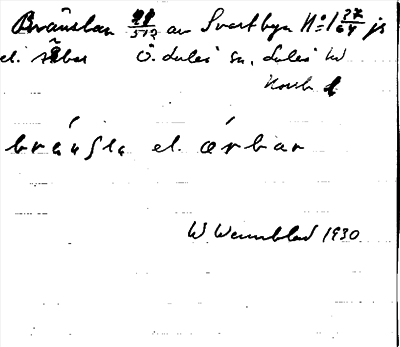 Bränslan 21/512 av Svartbyn No 1 37/64 js
el. Årbar Ö. Luleå sn. Luleå tr
Norrb. l
bränsla el. årbar
W Wennblad 1930